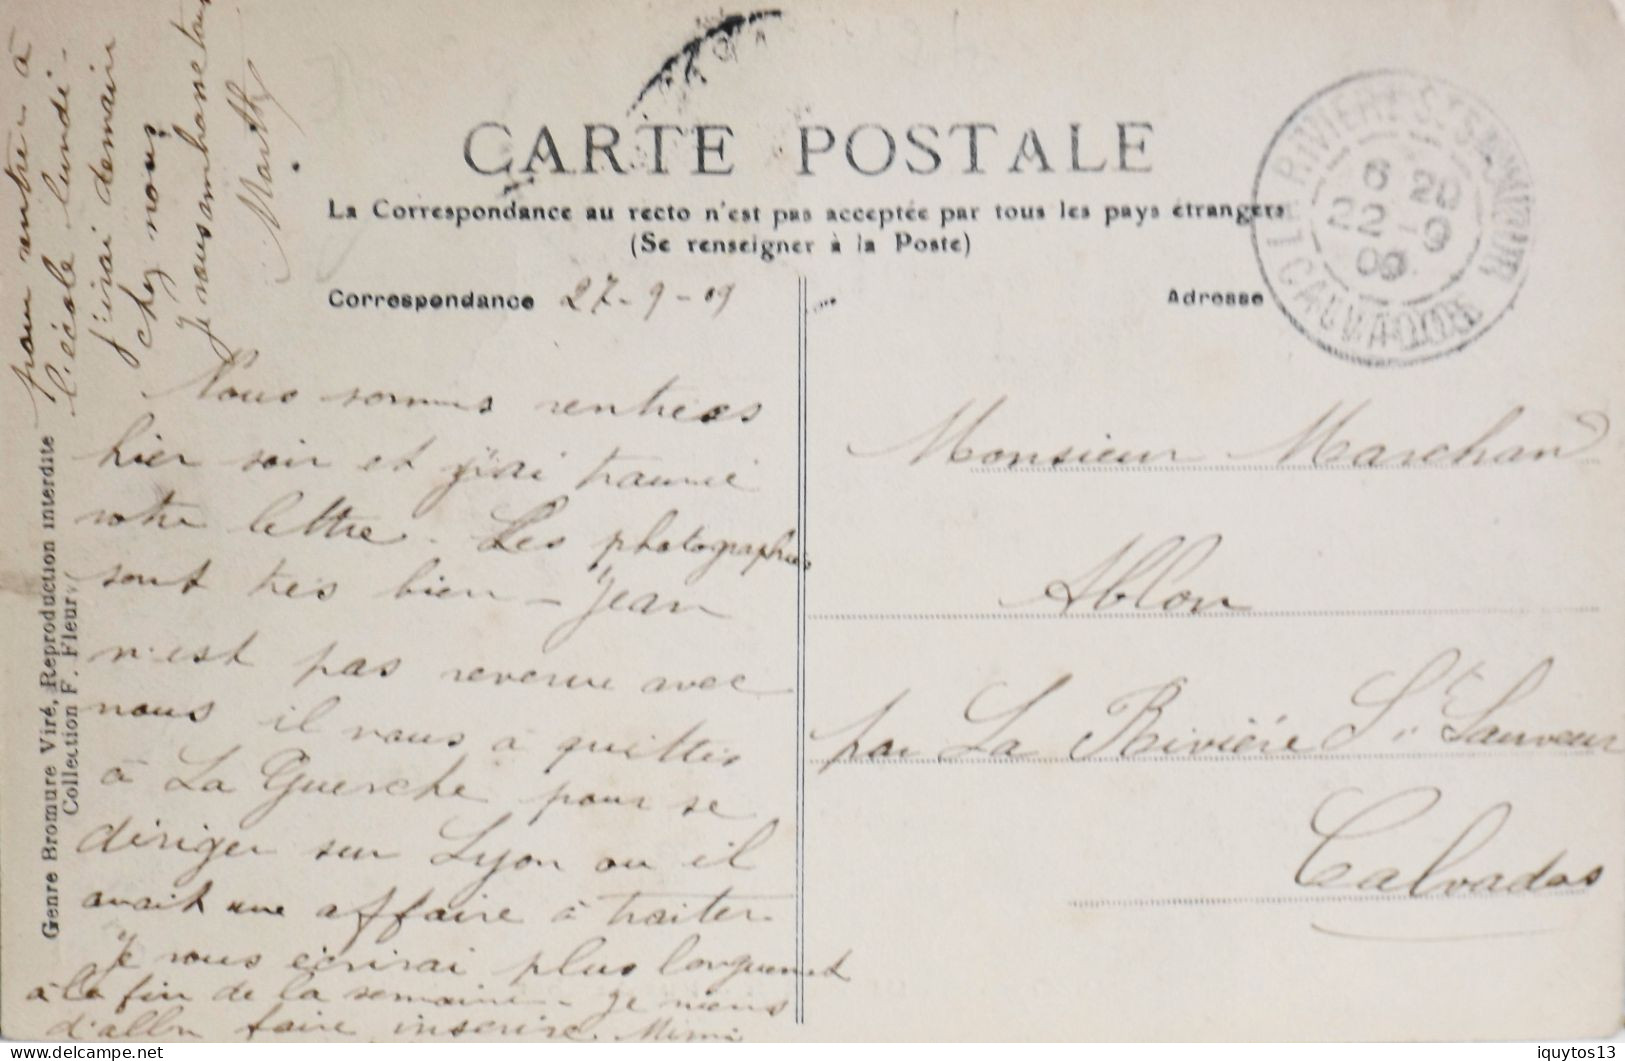 CARTE POSTALE
La Correspondance au recto n'est pas acceptée par tous les pays étrangers
(Se renseigner à la Poste)
Correspondance 27-9-09
Adresse
LA RIVIERE ST SAUVEUR
6 20
22 9
09
CALVADOS
Nous sommes rentrées
hier soir et j'ai trouvé
votre lettre. Les photographies
sont très bien - Jean
n'est pas revenu avec
nous il nous a quittés
à La Guerche pour se
diriger sur Lyon ou il
avait une affaire à traiter.
Je vous écrirai plus longuement
à la fin de la semaine - Je viens
d'aller faire inscrire Mimi
pour rentrer à
l'école lundi -
J'irai demain
chez nous
Je vous embrasse tous
Marthe
Monsieur Marchand
Ablon
par La Rivière St Sauveur
Calvados
Genre Bromure Viré, Reproduction interdite
Collection F. Fleury
delcampe.net
iquytos13